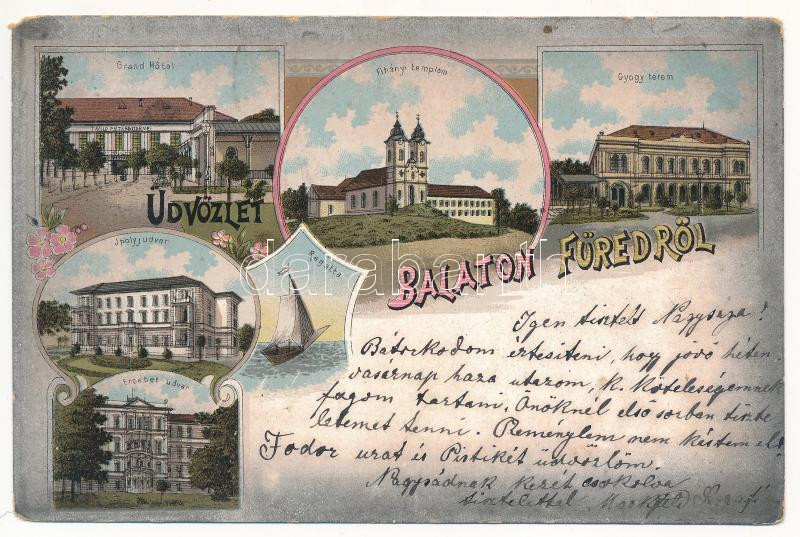 Grand Hôtel
Tihányi templom
Gyógy terem
ÜDVÖZLET
BALATON FÜREDRŐL
Jpolyj udvar
Regatta
Erzébet udvar
darabanth
Igen tisztelt Nagysága!
Bátorkodom értesiteni, hogy jövő héten
vasarnap haza utazom, k. Kötelességemnek
fogom tartani, Önöknél első sorban tiszte
letemet tenni. Reménylem nem késtem el.
Fodor urat és Pistikét üdvözlöm.
Nagysádnak kezét csokolva
tisztelettel